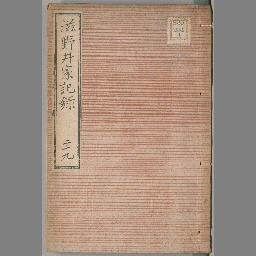 滋野井家記録 三九